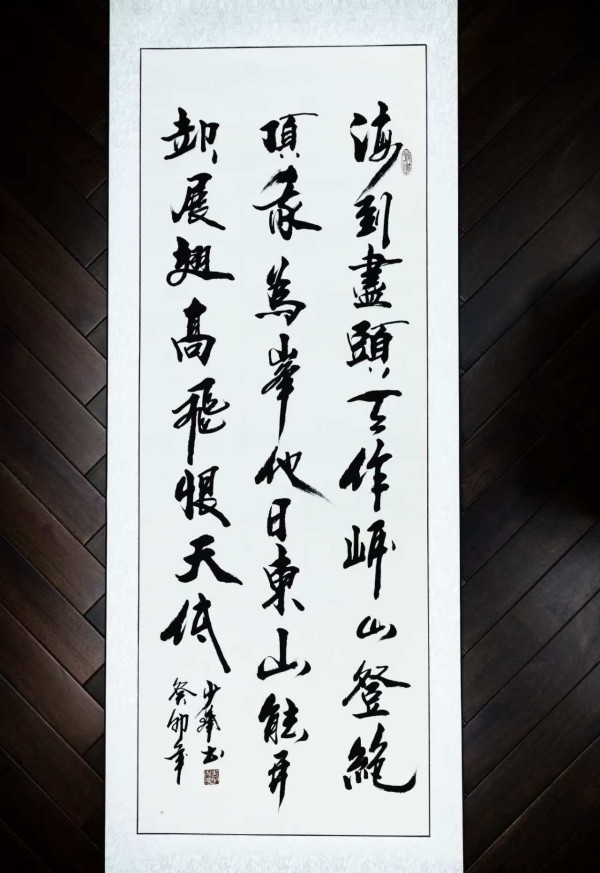 海到盡頭天作岸山登絶
頂我為峯他日東山能再
起展翅高飛恨天低
少 书
癸卯年